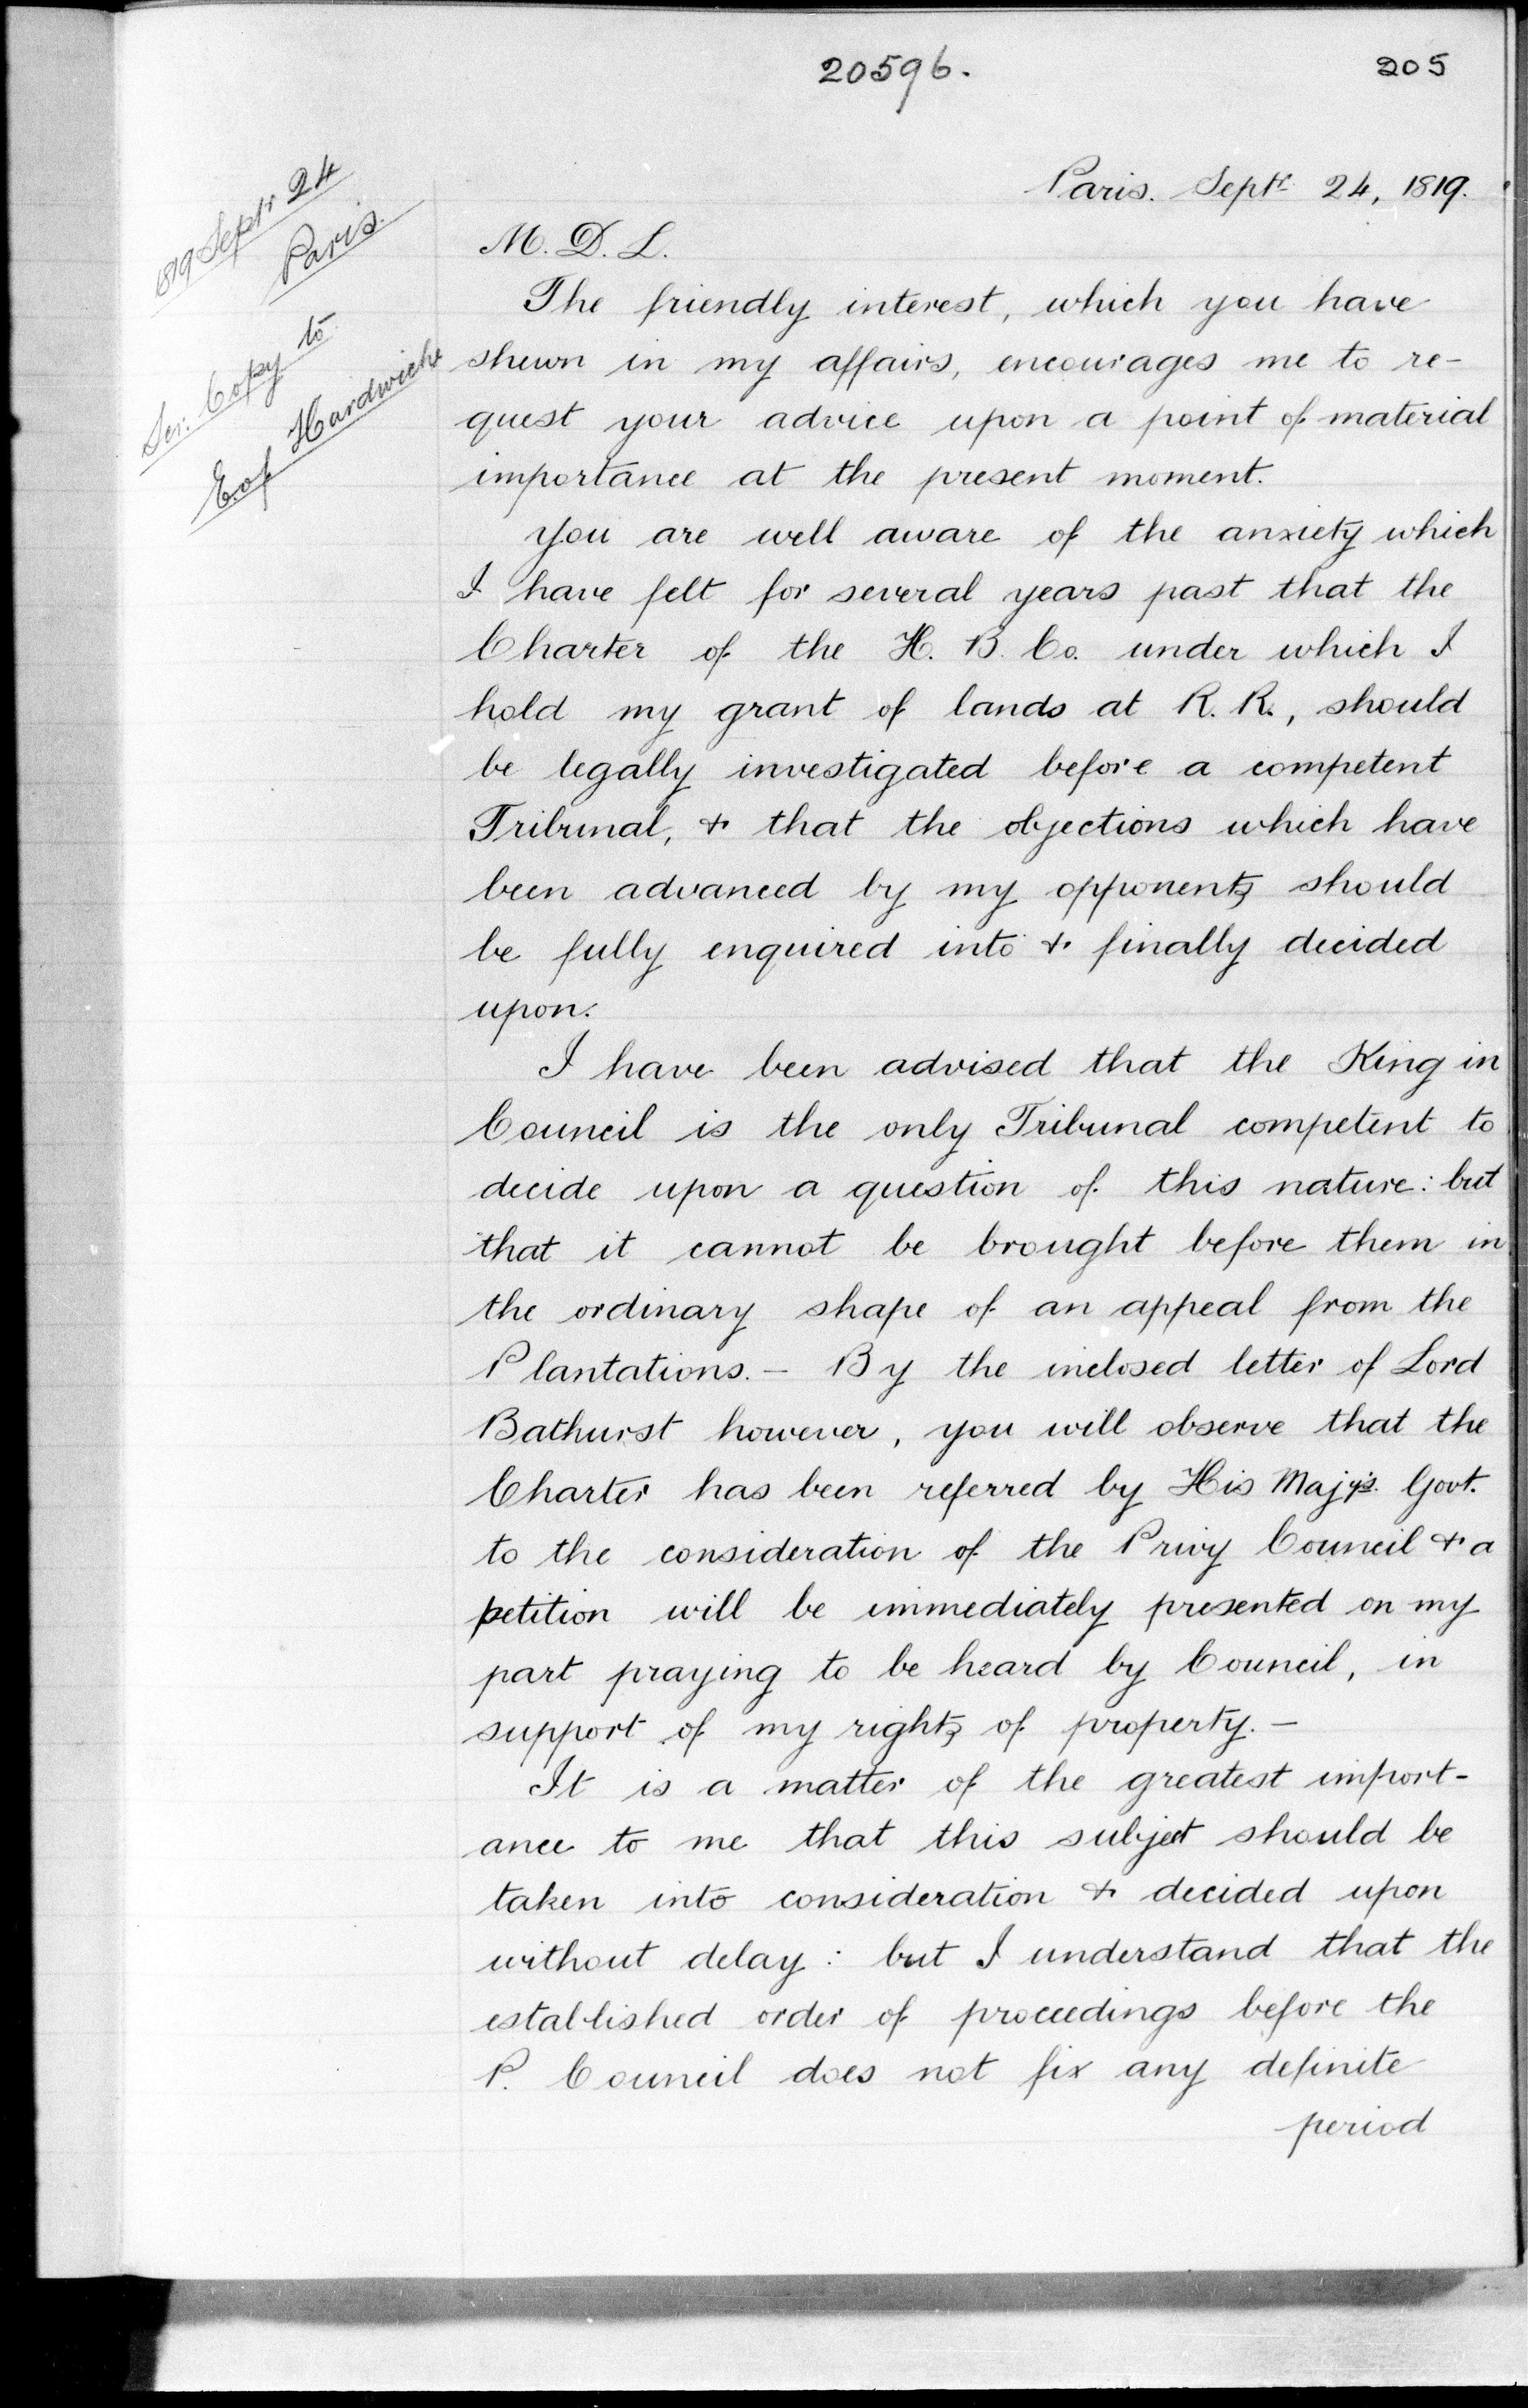 20596.
205
1819 Septr 24
Paris.
Ser. Copy to
E. of Hardwicke
Paris. Septr 24, 1819.
M. D. L.
The friendly interest, which you have
shewn in my affairs, encourages me to re-
quest your advice upon a point of material
importance at the present moment.
You are well aware of the anxiety which
I have felt for several years past that the
Charter of the H. B. Co. under which I
hold my grant of lands at R. R., should
be legally investigated before a competent
Tribunal, & that the objections which have
been advanced by my opponents should
be fully enquired into & finally decided
upon.
I have been advised that the King in
Council is the only Tribunal competent to
decide upon a question of this nature: but
that it cannot be brought before them in
the ordinary shape of an appeal from the
Plantations. - By the inclosed letter of Lord
Bathurst however, you will observe that the
Charter has been referred by His Majy's. Govt.
to the consideration of the Privy Council & a
petition will be immediately presented on my
part praying to be heard by Council, in
support of my rights of property. -
It is a matter of the greatest import-
ance to me that this subject should be
taken into consideration & decided upon
without delay: but I understand that the
established order of proceedings before the
P. Council does not fix any definite
period